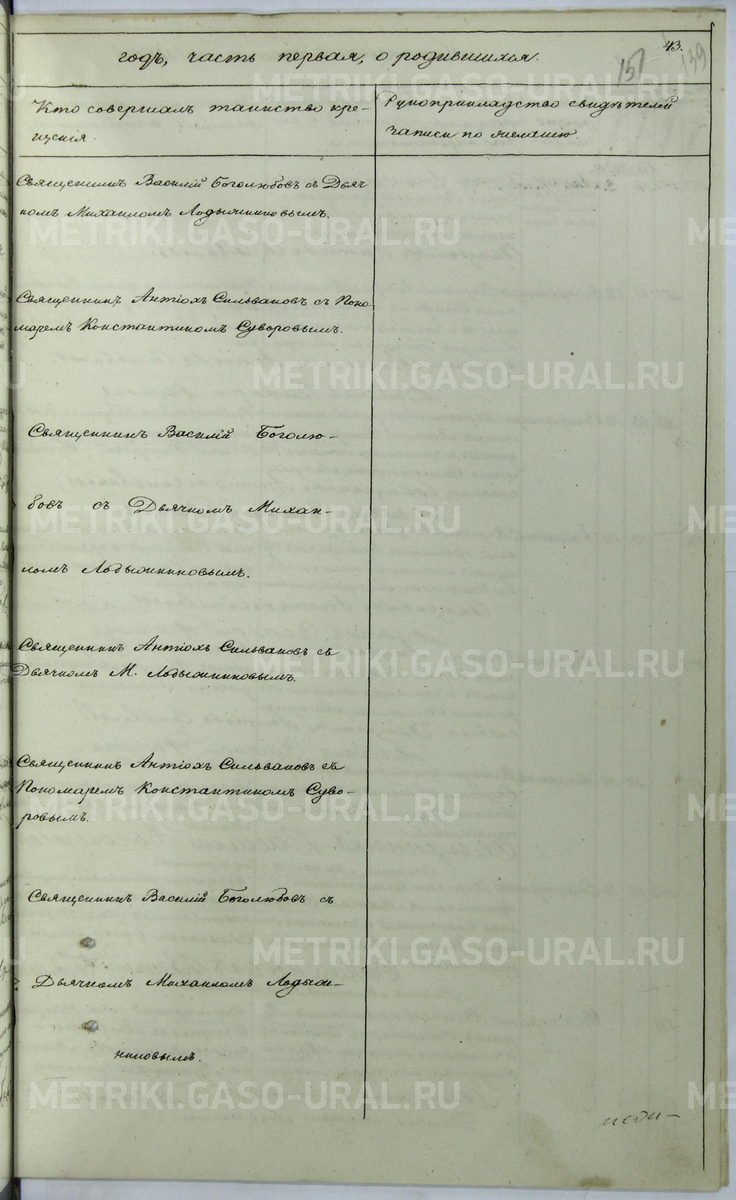 43.
157
139
годъ, часть первая, о родившихся.
Кто совершалъ таинство кре-
щенія.
Рукоприкладство свидѣтелей
записи по желанію.
Священникъ Василій Боголюбовъ съ Дьяч
комъ Михаиломъ Лодыжниковымъ.
Священникъ Антіохъ Сильвановъ съ Поно
маремъ Константиномъ Суворовымъ.
Священникъ Василій Боголю-
бовъ съ Дьячкомъ Михаи-
ломъ Лодыжниковымъ.
Священникъ Антіохъ Сильвановъ съ
Дьячкомъ М. Лодыжниковымъ.
Священникъ Антіохъ Сильвановъ съ
Пономаремъ Константиномъ Суво-
ровымъ.
Священникъ Василій Боголюбовъ съ
Дьячкомъ Михаиломъ Лодыж-
никовымъ.
METRIKI.GASO-URAL.RU